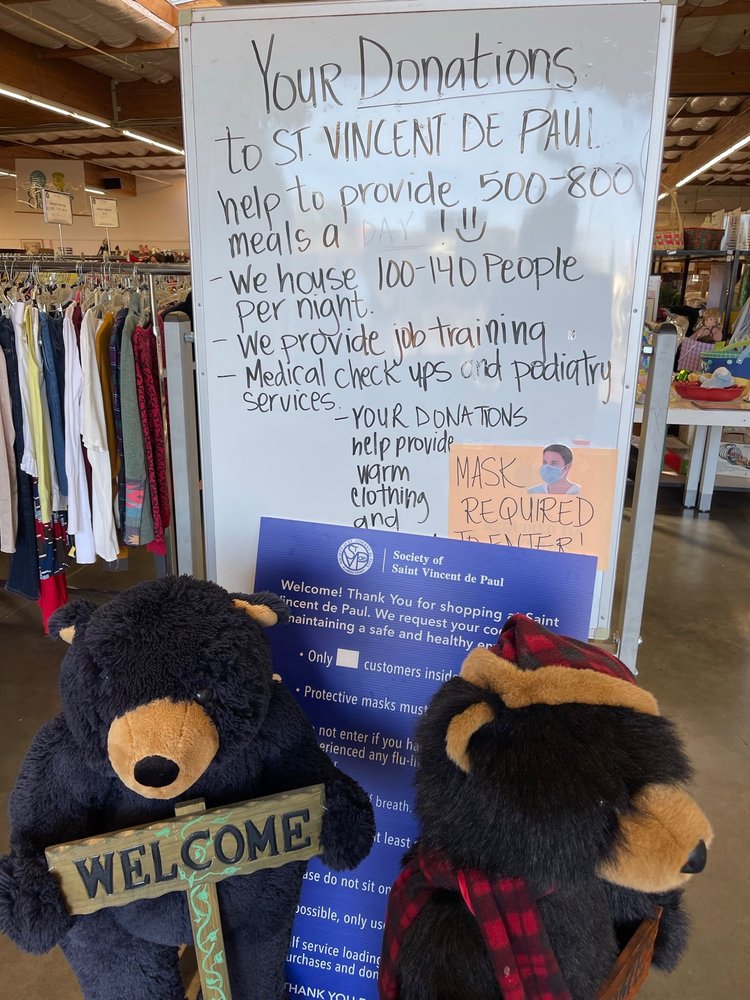 Your Donations
to ST. VINCENT DE PAUL
help to provide 500-800
meals a DAY !
- We house 100-140 People
per night.
- We provide job training
- Medical check ups and podiatry
services.
- YOUR DONATIONS
help provide
warm
clothing
and
MASK
REQUIRED
TO ENTER!
Society of
Saint Vincent de Paul
Welcome! Thank You for shopping at Saint
Vincent de Paul. We request your
maintaining a safe and healthy
• Only customers inside
• Protective masks must
not enter if you
experienced any
of breath.
at least
do not sit on
possible, only
self service loading
purchases and
THANK YOU
WELCOME